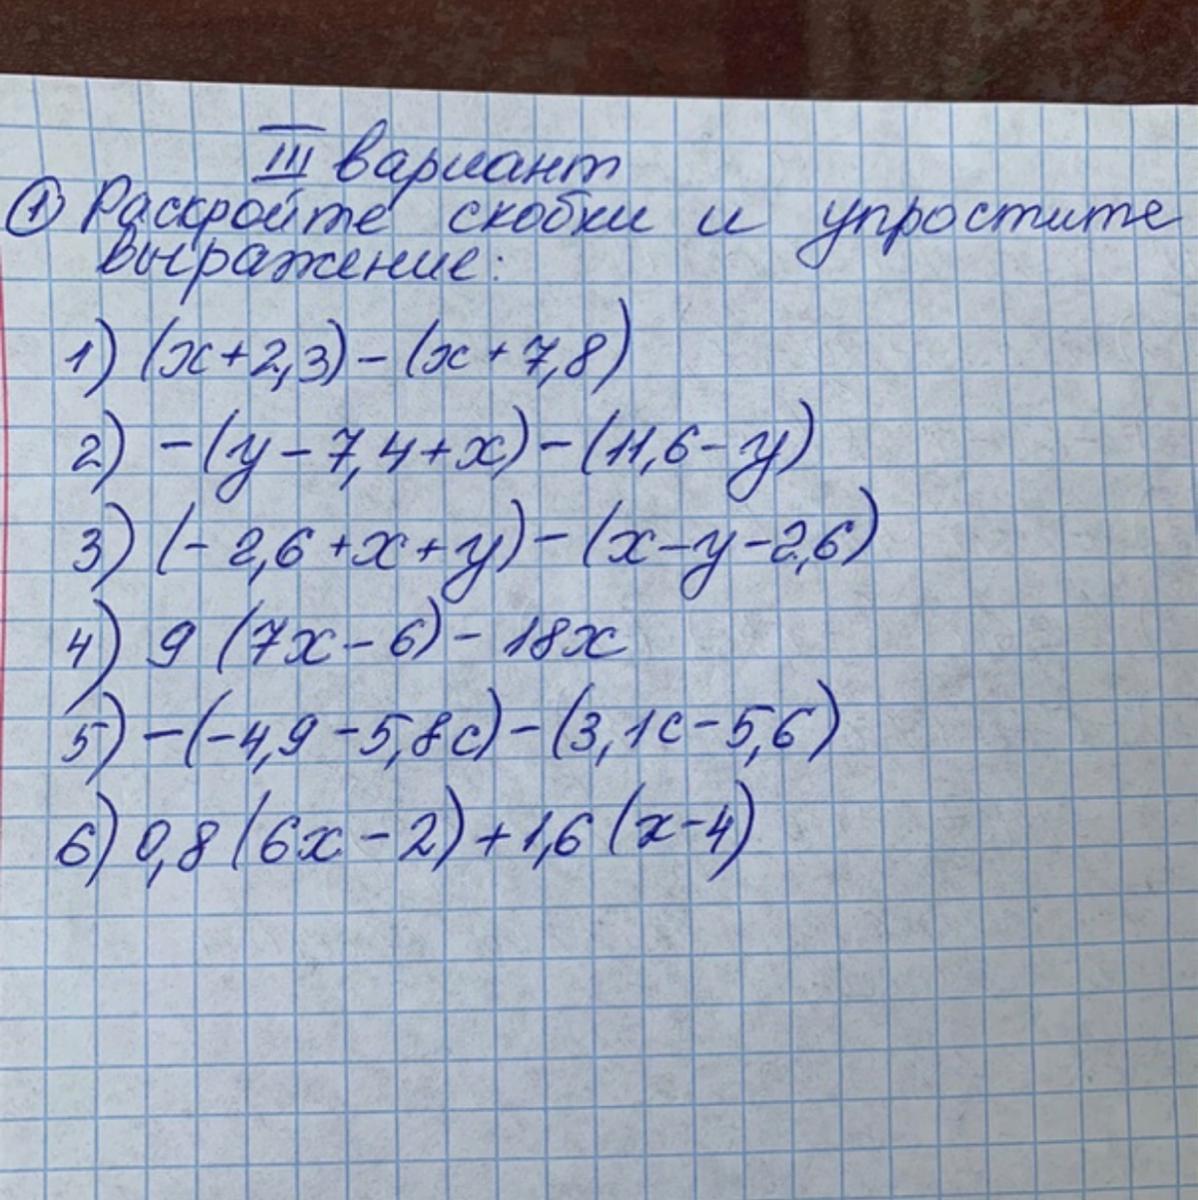 III вариант
① Раскройте скобки и упростите
выражение:
1) (x+2,3)-(x+7,8)
2) -(y-7,4+x)-(11,6-y)
3) (-2,6+x+y)-(x-y-2,6)
4) 9(7x-6)-18x
5) -(-4,9-5,8c)-(3,1c-5,6)
6) 0,8(6x-2)+1,6(x-4)